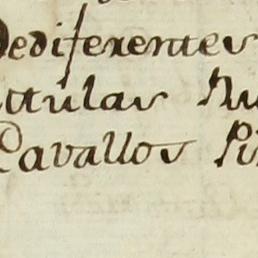 Dediferentes
ttulas Mu
Cavallos Pi